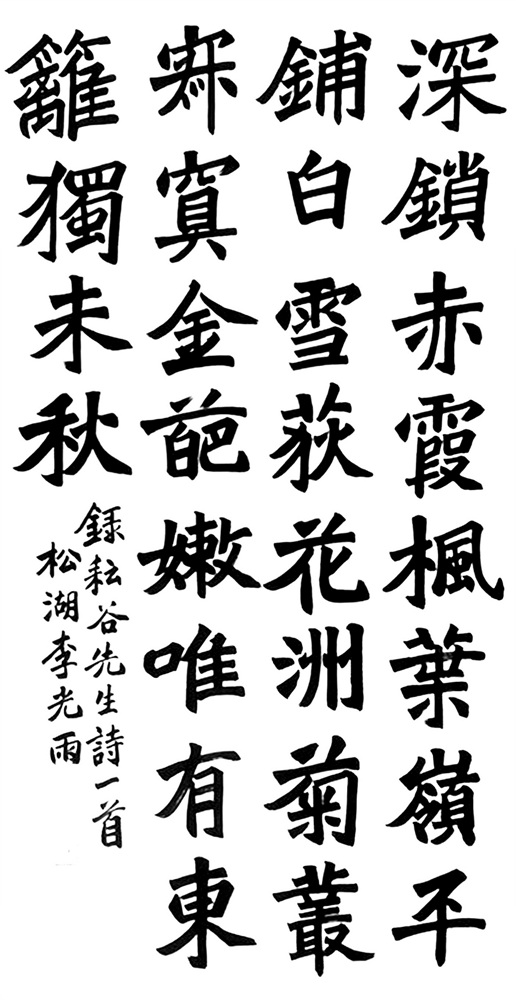 深鎖赤霞楓葉嶺平
鋪白雪荻花洲菊叢
寂寞金葩嫩唯有東
籬獨未秋
録耘谷先生詩一首
松湖李光雨